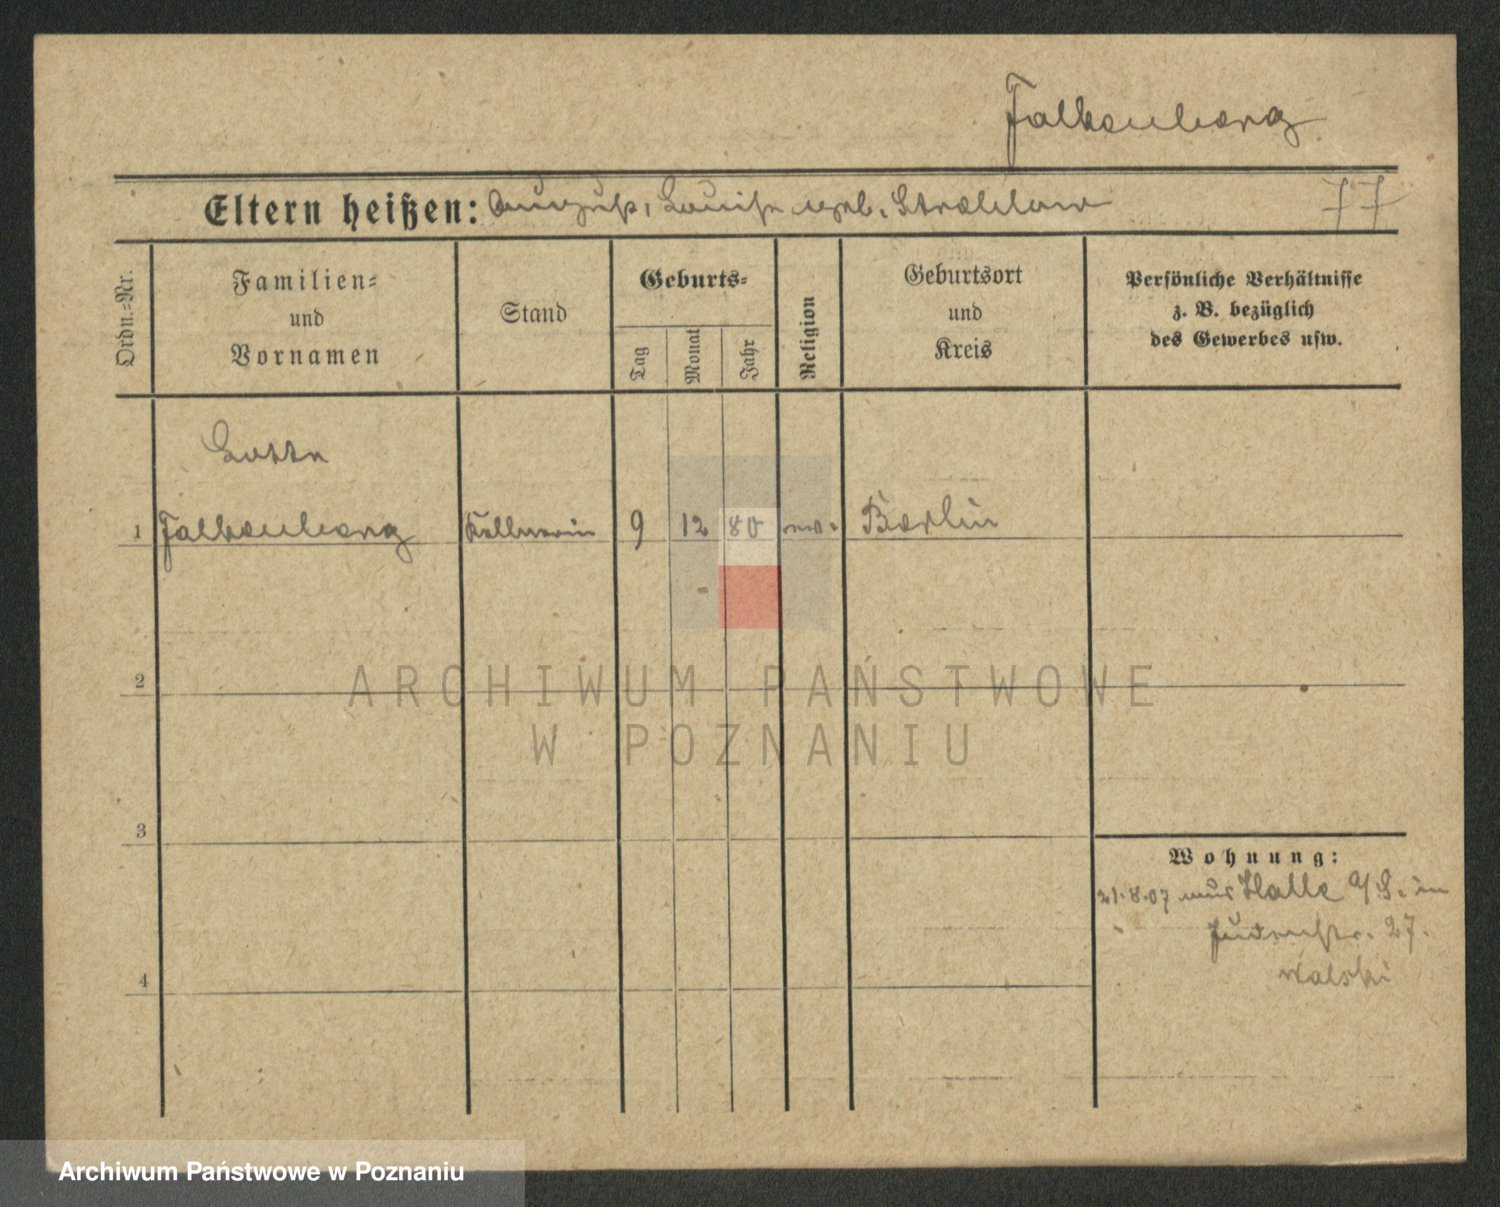 Falkenberg
Eltern heißen: August, Louise geb. Strehlow 77
Ordn.-Nr.
Familien-
und
Vornamen
Stand
Geburts-
Tag
Monat
Jahr
Religion
Geburtsort
und
Kreis
Persönliche Verhältnisse
z. B. bezüglich
des Gewerbes usw.
Lotte
1 Falkenberg Kellnerin 9 12 80 ev. Berlin
2
ARCHIWUM PAŃSTWOWE
W POZNANIU
3
Wohnung:
21.8.07 aus Halle a/S. in
Judenstr. 27.
4
Archiwum Państwowe w Poznaniu